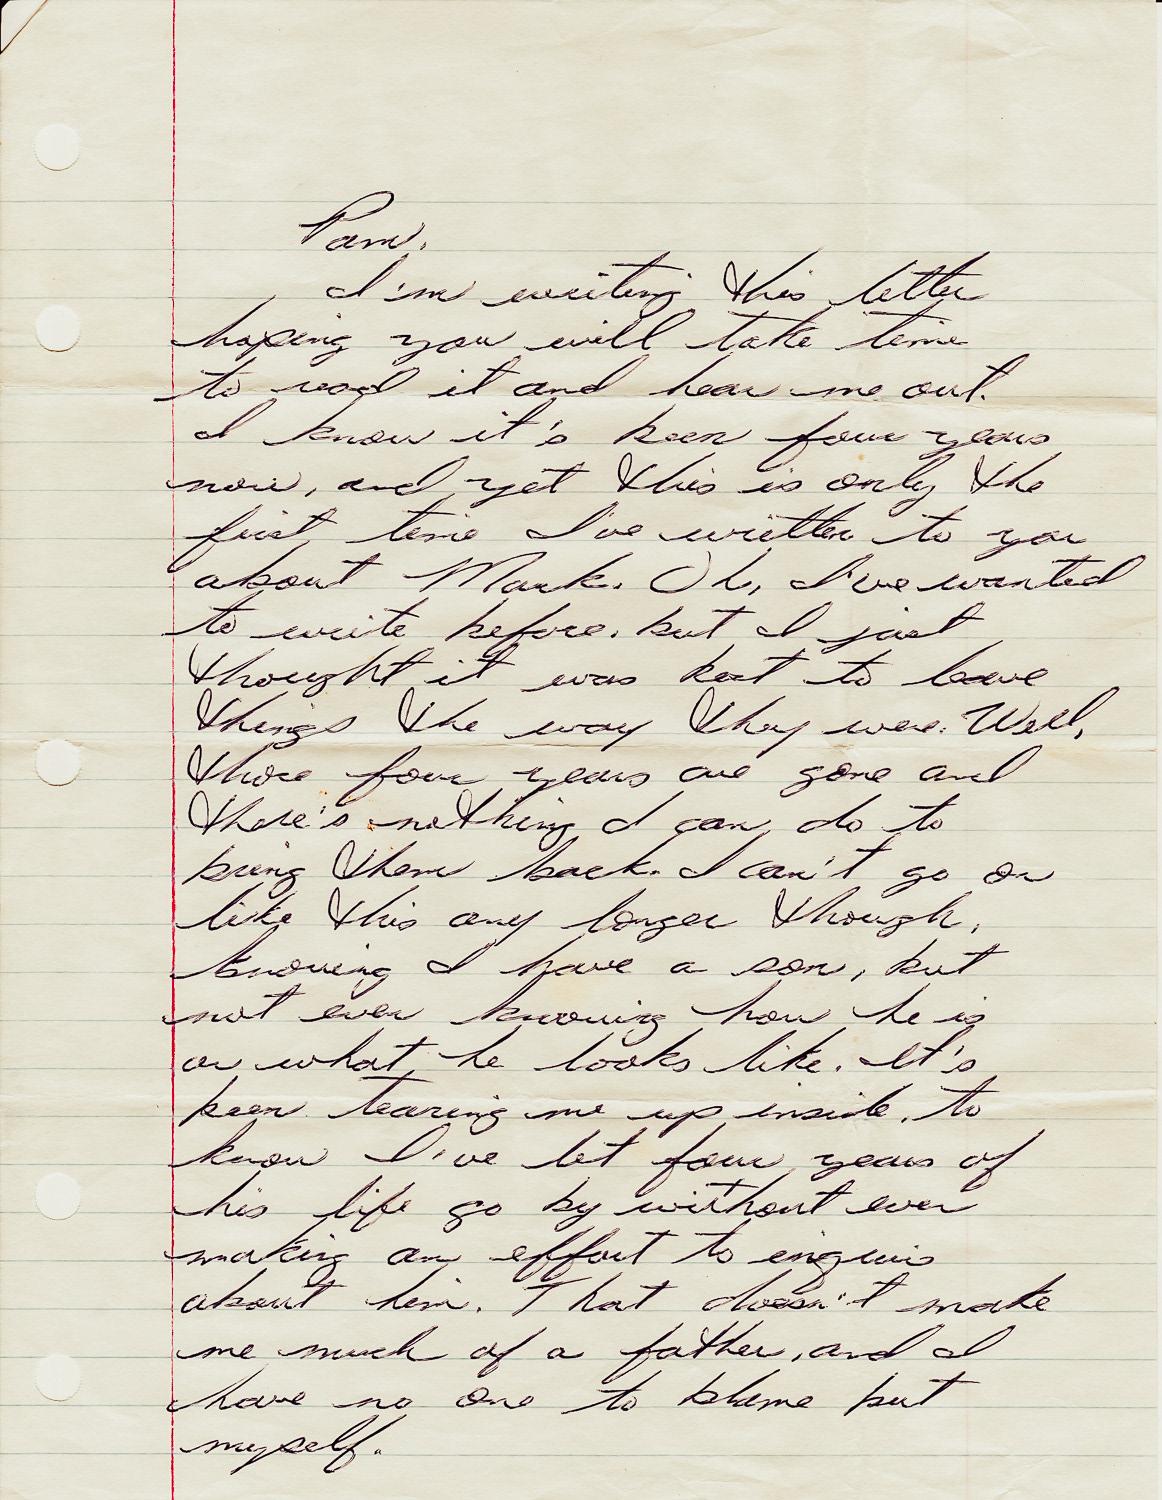 Pam,
I'm writing this letter
hoping you will take time
to read it and hear me out.
I know it's been four years
now, and yet this is only the
first time I've written to you
about Mark. Oh, I've wanted
to write before, but I just
thought it was best to leave
things the way they were. Well,
those four years are gone and
there's nothing I can do to
bring them back. I can't go on
like this any longer though,
knowing I have a son, but
not ever knowing how he is
or what he looks like. It's
been tearing me up inside, to
know I've let four years of
his life go by without ever
making an effort to enquire
about him. That doesn't make
me much of a father, and I
have no one to blame but
myself.